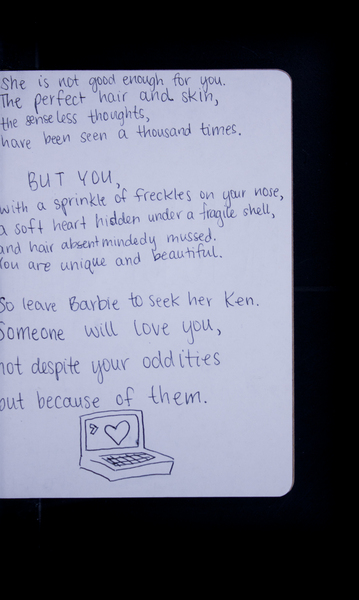 She is not good enough for you.
The perfect hair and skin,
the senseless thoughts,
have been seen a thousand times.
BUT YOU,
with a sprinkle of freckles on your nose,
a soft heart hidden under a fragile shell,
and hair absentmindedly mussed.
You are unique and beautiful.
So leave Barbie to seek her Ken.
Someone will love you,
not despite your oddities
but because of them.